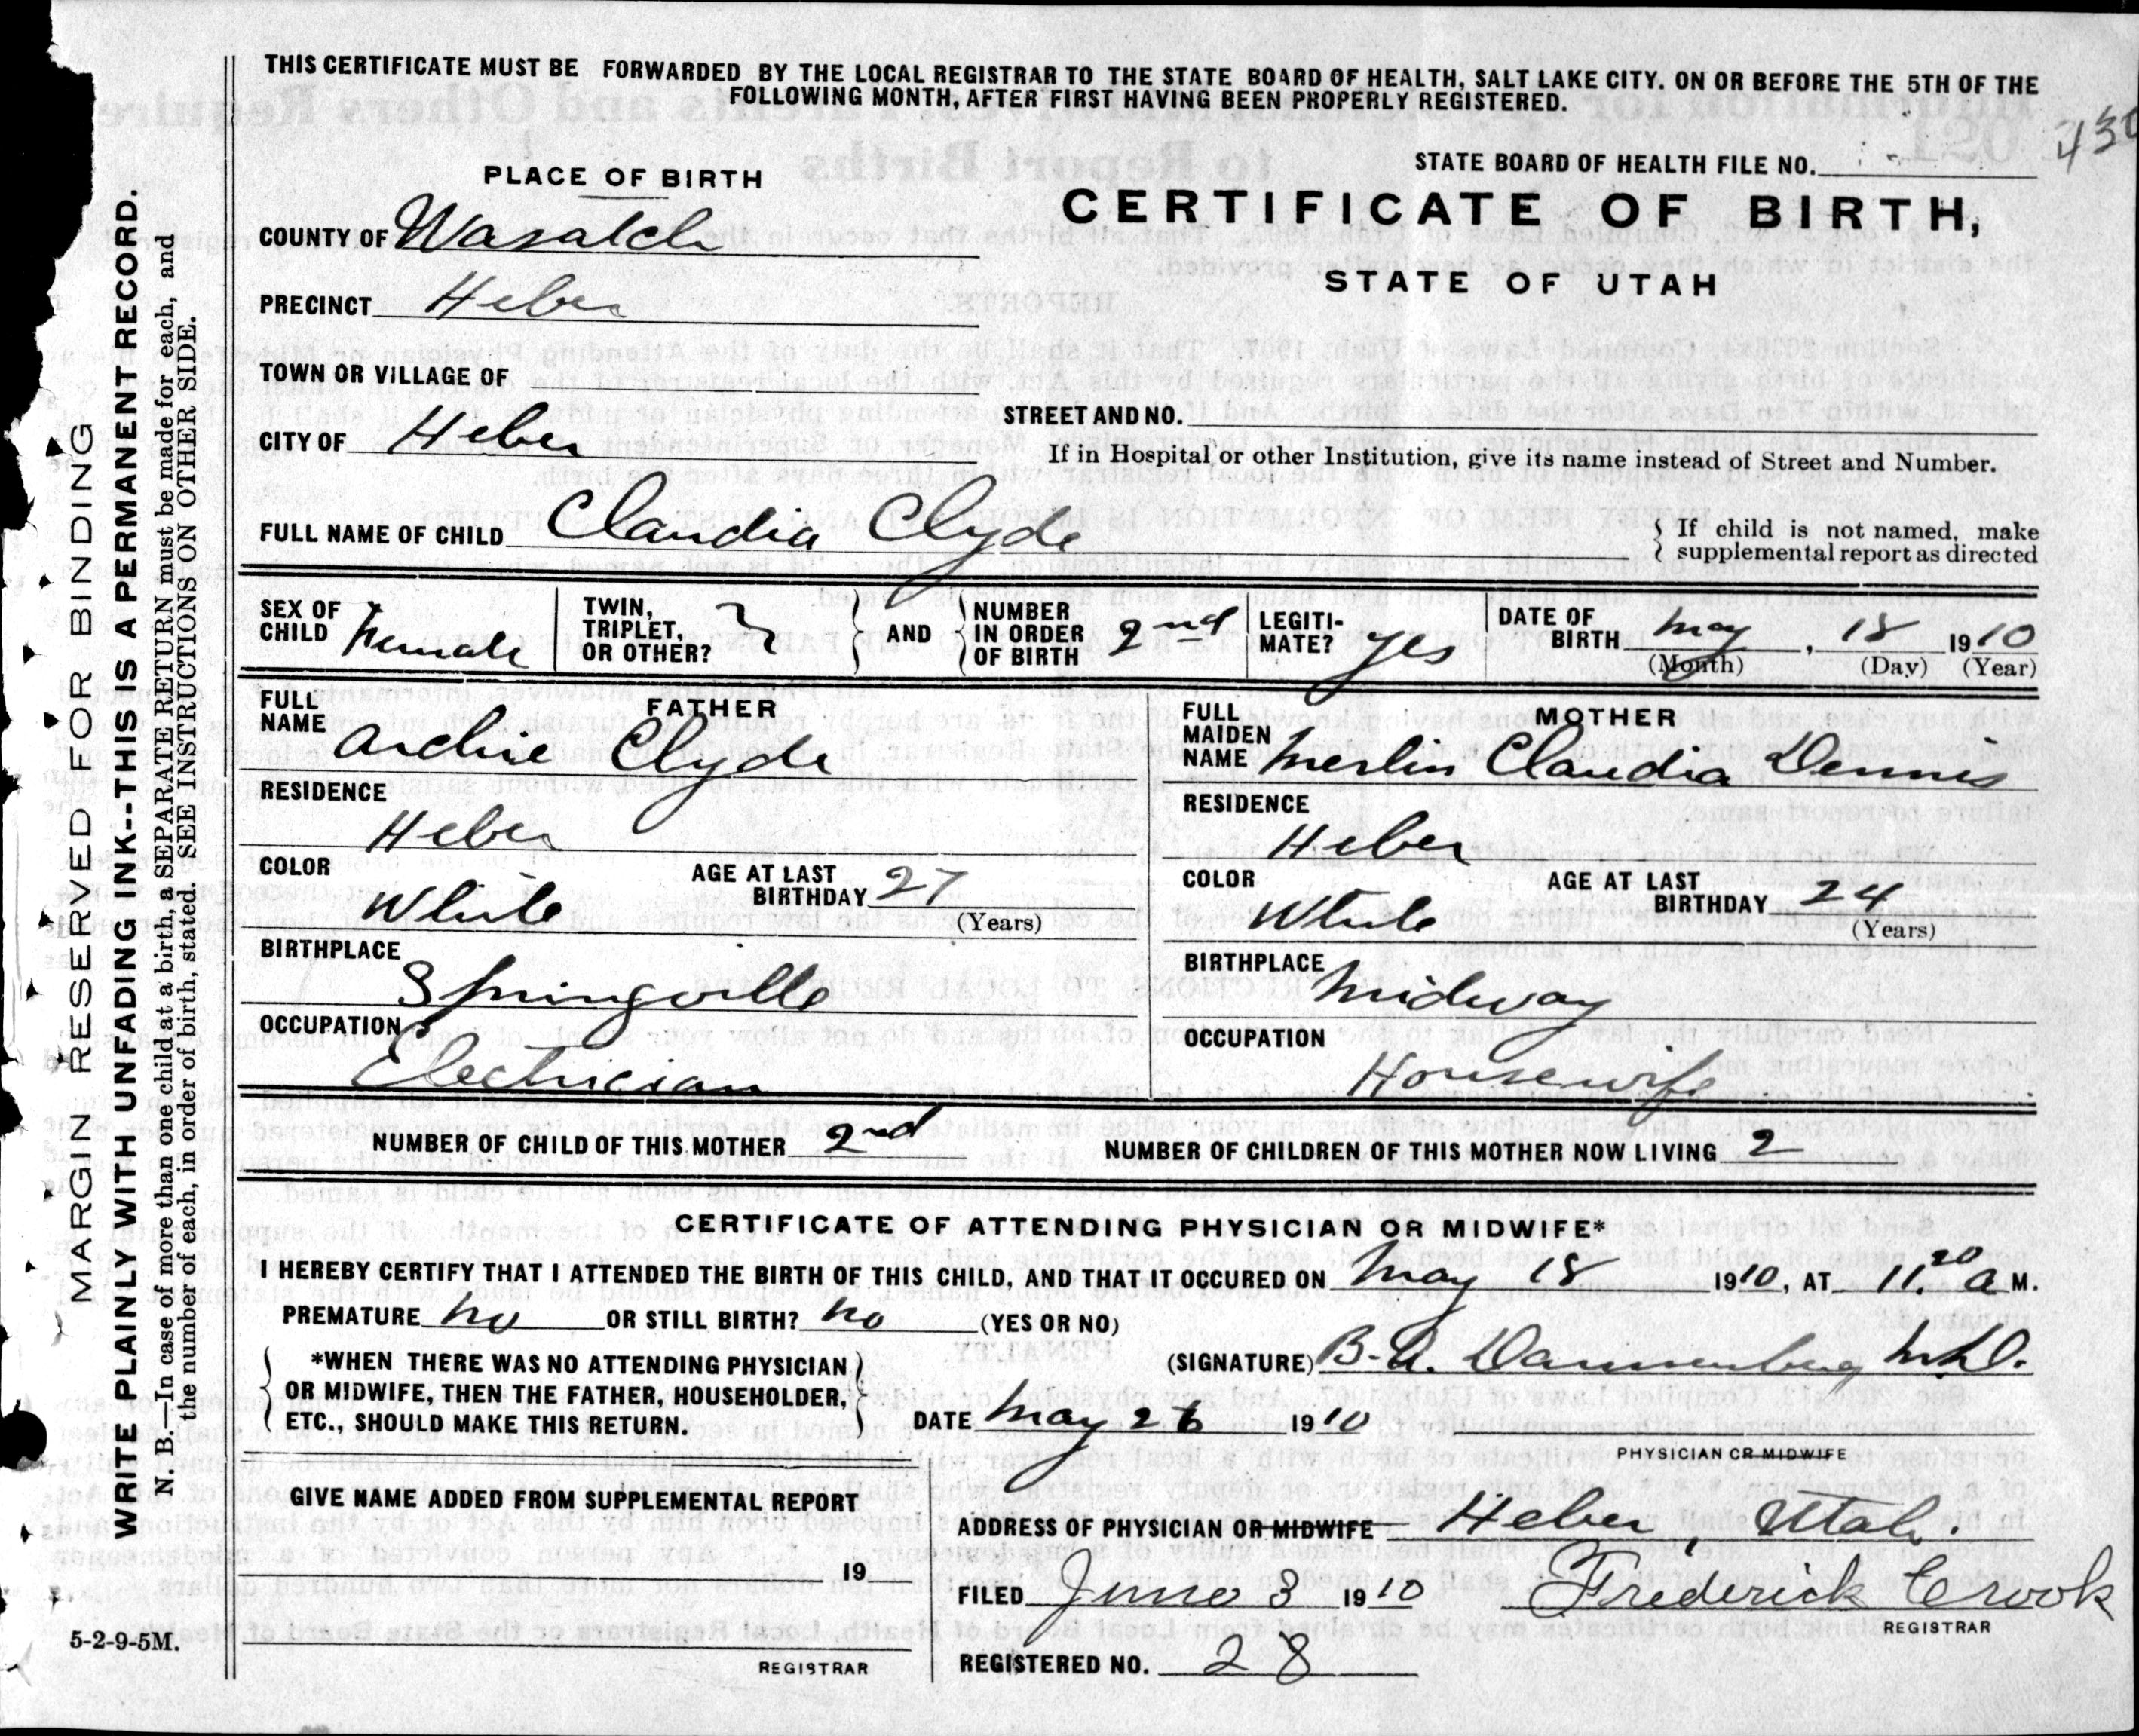 THIS CERTIFICATE MUST BE FORWARDED BY THE LOCAL REGISTRAR TO THE STATE BOARD OF HEALTH, SALT LAKE CITY. ON OR BEFORE THE 5TH OF THE
FOLLOWING MONTH, AFTER FIRST HAVING BEEN PROPERLY REGISTERED.
STATE BOARD OF HEALTH FILE NO.
PLACE OF BIRTH
CERTIFICATE OF BIRTH,
STATE OF UTAH
COUNTY OF Wasatch
PRECINCT Heber
TOWN OR VILLAGE OF
STREET AND NO.
CITY OF Heber
If in Hospital or other Institution, give its name instead of Street and Number.
FULL NAME OF CHILD Claudia Clyde
{ If child is not named, make
supplemental report as directed
SEX OF CHILD Female
TWIN, TRIPLET, OR OTHER?
AND
NUMBER IN ORDER OF BIRTH 2nd
LEGITI-MATE? yes
DATE OF BIRTH May, 18 1910
(Month) (Day) (Year)
FATHER
FULL NAME Archie Clyde
RESIDENCE
Heber
COLOR
White
AGE AT LAST BIRTHDAY 27
(Years)
BIRTHPLACE
Springville
OCCUPATION
Electrician
MOTHER
FULL MAIDEN NAME Merlin Claudia Dennis
RESIDENCE
Heber
COLOR
White
AGE AT LAST BIRTHDAY 24
(Years)
BIRTHPLACE
Midway
OCCUPATION
Housewife
NUMBER OF CHILD OF THIS MOTHER 2nd
NUMBER OF CHILDREN OF THIS MOTHER NOW LIVING 2
CERTIFICATE OF ATTENDING PHYSICIAN OR MIDWIFE*
I HEREBY CERTIFY THAT I ATTENDED THE BIRTH OF THIS CHILD, AND THAT IT OCCURED ON May 18 1910, AT 11.20 a M.
PREMATURE no OR STILL BIRTH? no (YES OR NO)
*WHEN THERE WAS NO ATTENDING PHYSICIAN
OR MIDWIFE, THEN THE FATHER, HOUSEHOLDER,
ETC., SHOULD MAKE THIS RETURN.
(SIGNATURE) B. A. Dannenberg M.D.
DATE May 26 1910
PHYSICIAN OR MIDWIFE
GIVE NAME ADDED FROM SUPPLEMENTAL REPORT
19
REGISTRAR
ADDRESS OF PHYSICIAN OR MIDWIFE Heber, Utah.
FILED June 3 1910 Frederick Crook
REGISTRAR
REGISTERED NO. 28
5-2-9-5M.
MARGIN RESERVED FOR BINDING
WRITE PLAINLY WITH UNFADING INK--THIS IS A PERMANENT RECORD.
N. B.—In case of more than one child at a birth, a SEPARATE RETURN must be made for each, and
the number of each, in order of birth, stated. SEE INSTRUCTIONS ON OTHER SIDE.